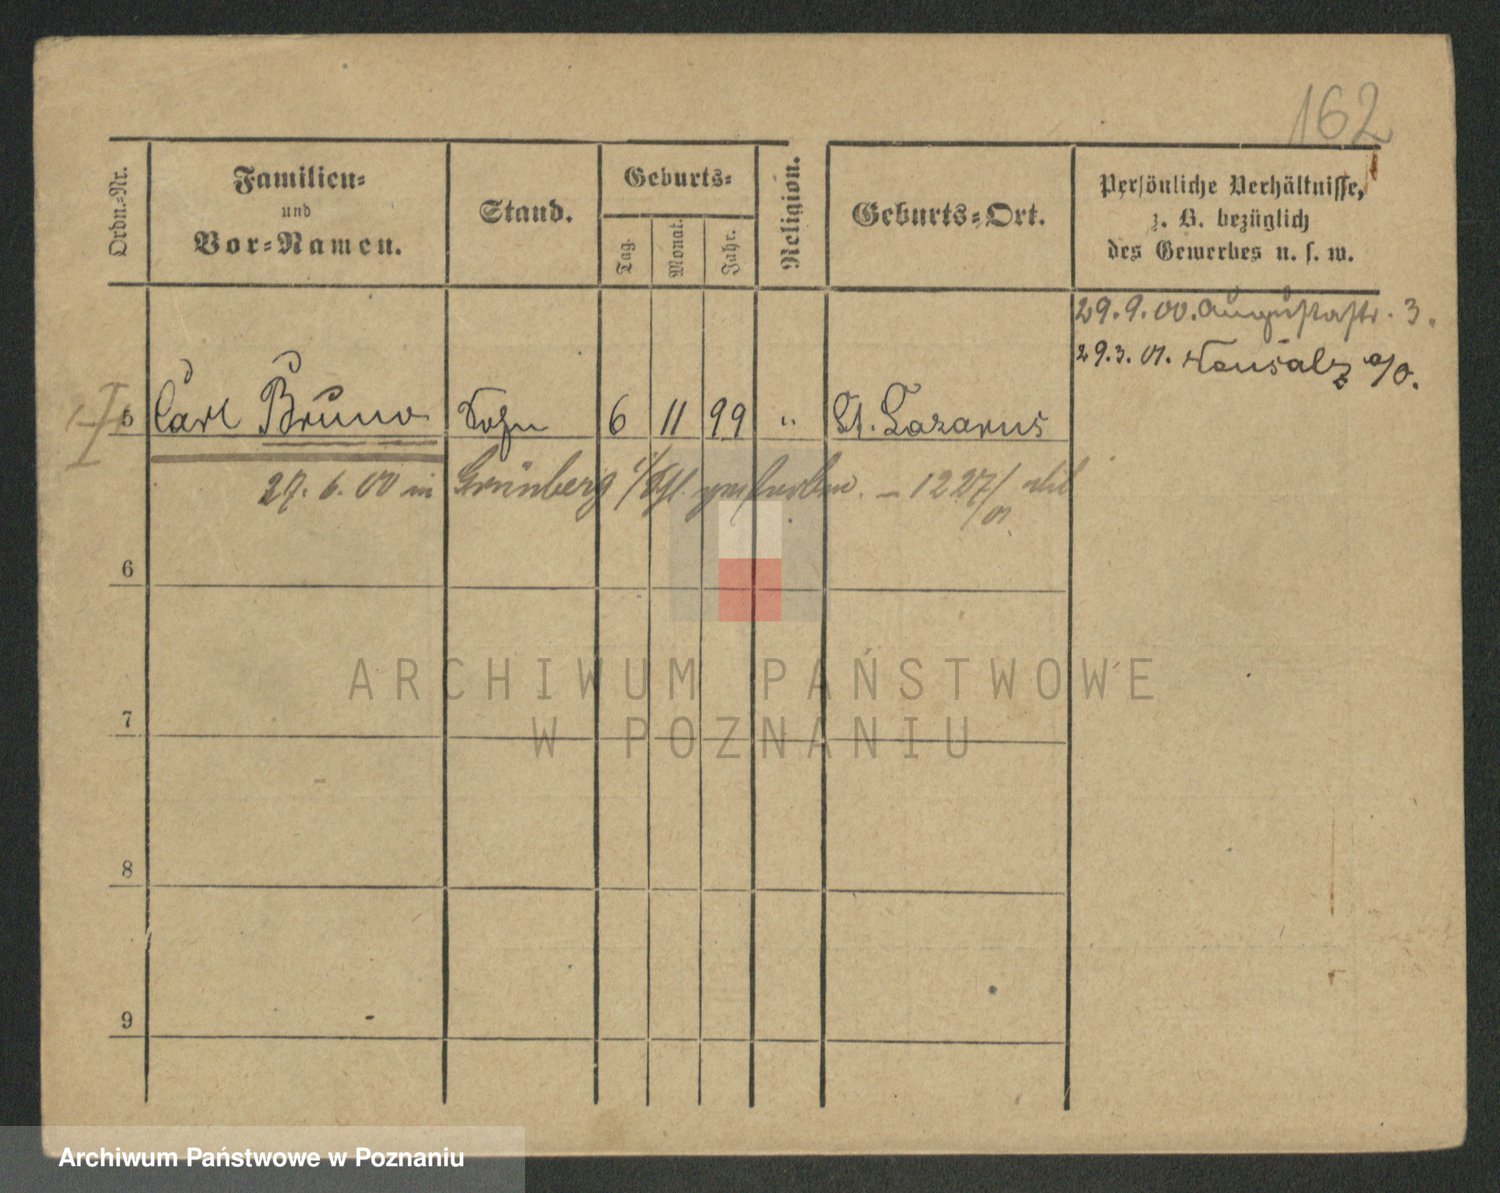 162
Ordn.-Nr.
Familien-
und
Vor-Namen.
Stand.
Geburts-
Tag.
Monat.
Jahr.
Religion.
Geburts-Ort.
Persönliche Verhältnisse,
z. B. bezüglich
des Gewerbes u. s. w.
29.9.00. Augustastr. 3.
29.3.01. Neusalz a/O.
5 Carl Bruno Sohn 6 11 99 " St. Lazarus
27.6.00 in Grünberg i/Schl. verstorben. – 1227/01
6
7
8
9
ARCHIWUM PAŃSTWOWE
W POZNANIU
Archiwum Państwowe w Poznaniu